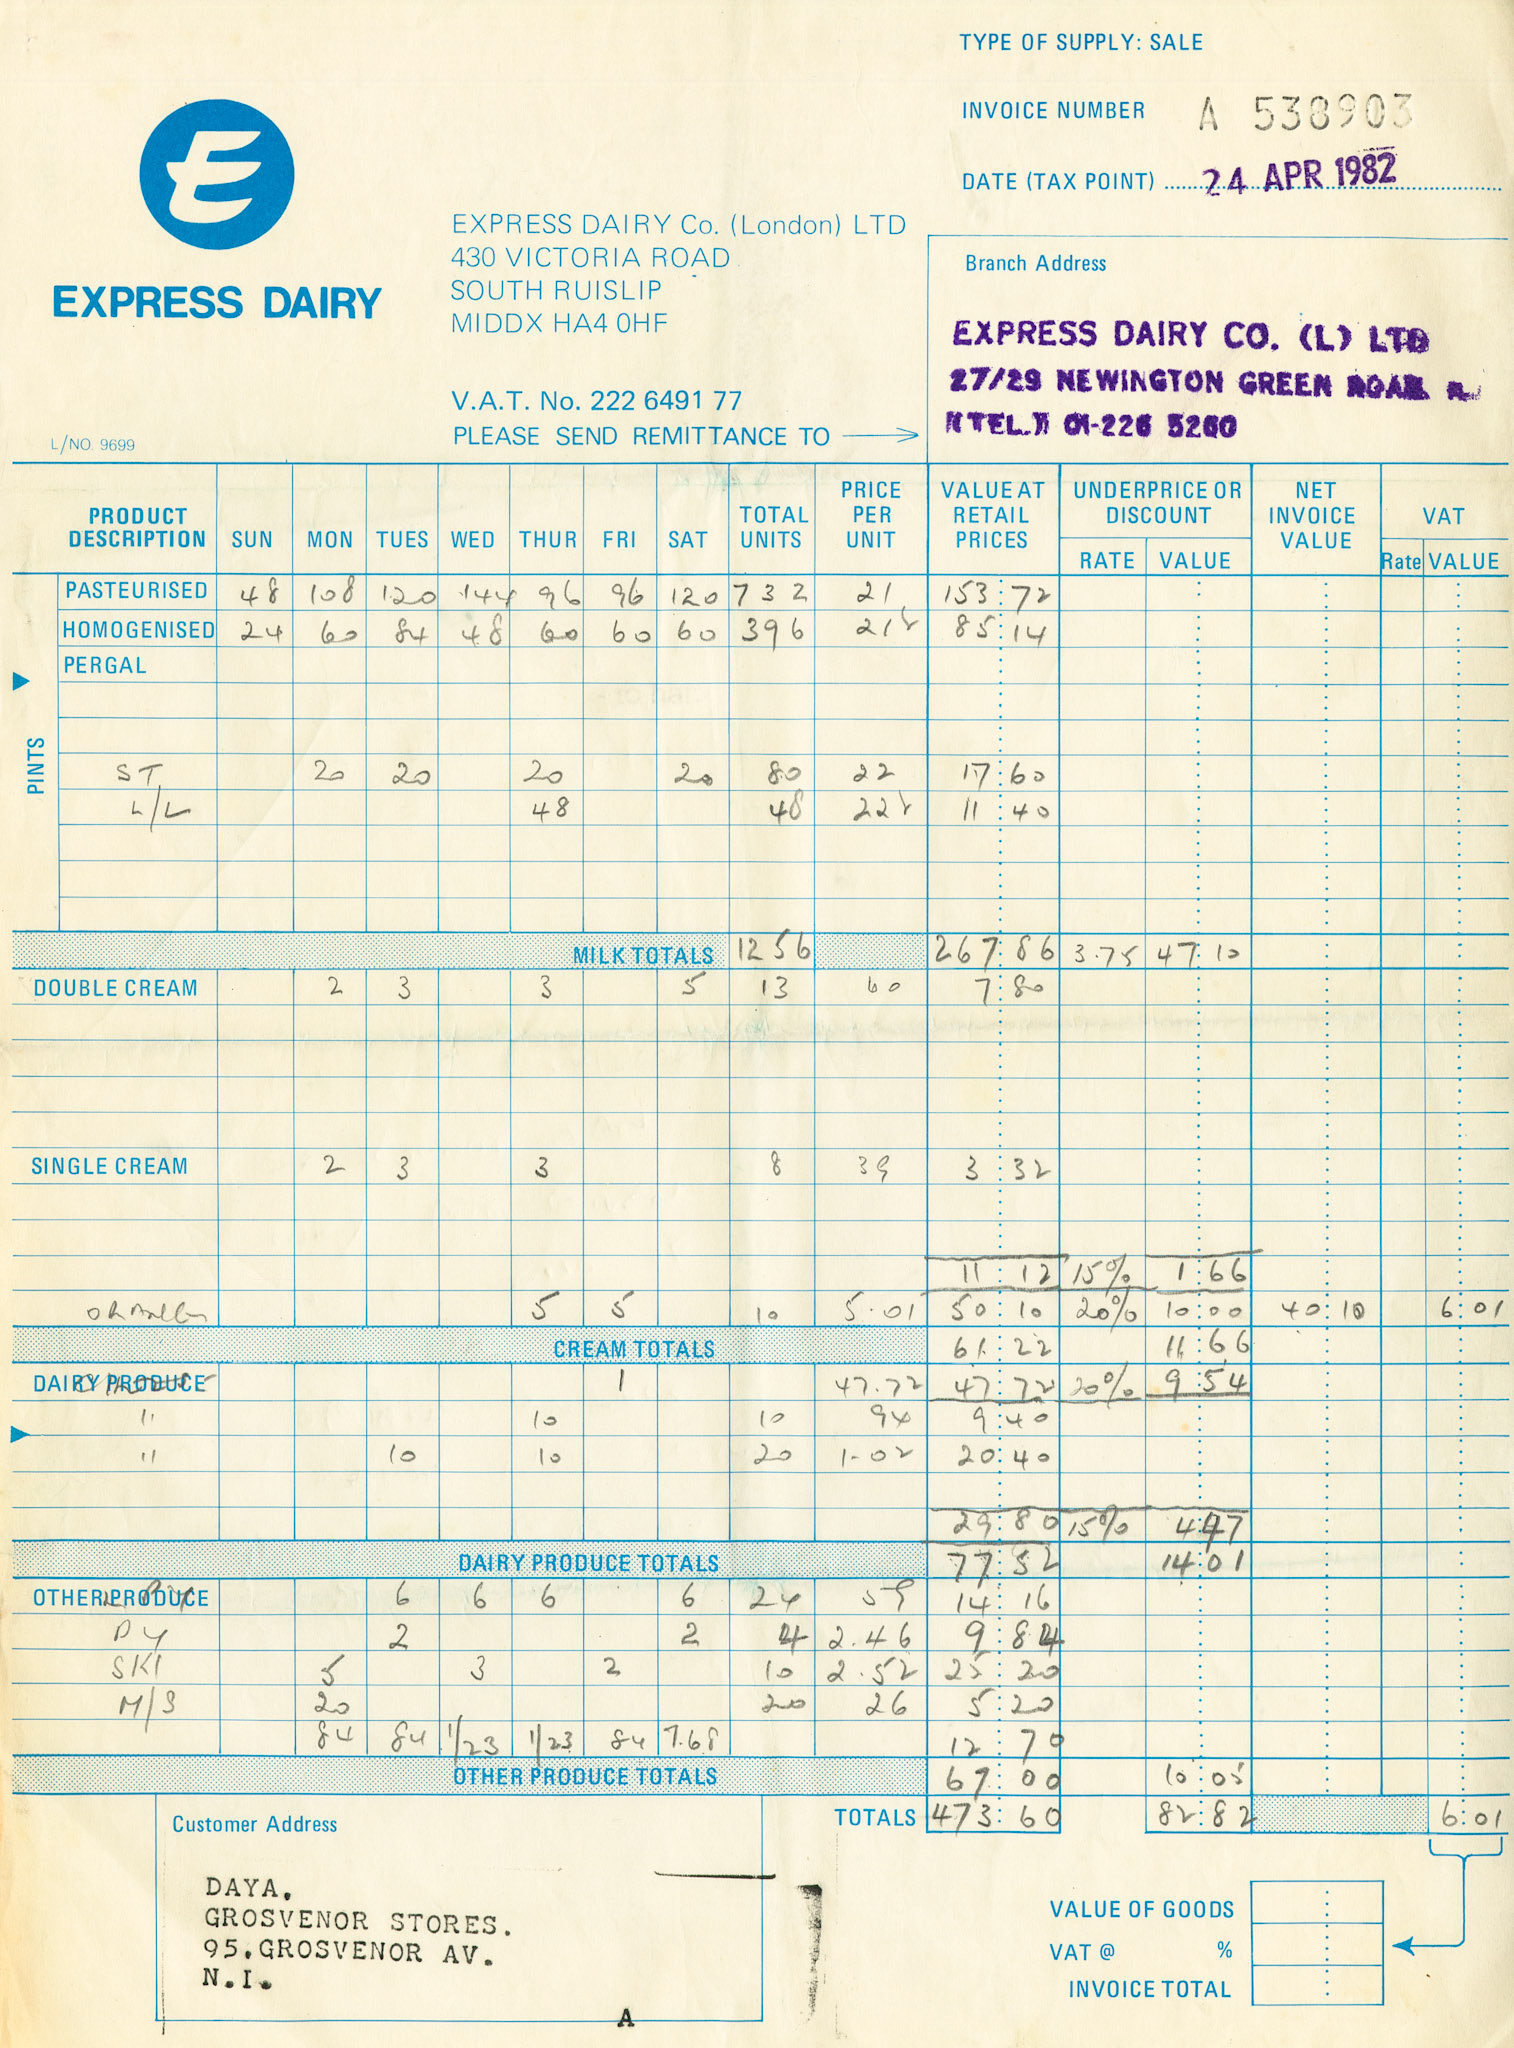 TYPE OF SUPPLY: SALE
INVOICE NUMBER A 538903
DATE (TAX POINT) 24 APR 1982
E
EXPRESS DAIRY
EXPRESS DAIRY Co. (London) LTD
430 VICTORIA ROAD
SOUTH RUISLIP
MIDDX HA4 0HF
V.A.T. No. 222 6491 77
PLEASE SEND REMITTANCE TO
L/NO. 9699
Branch Address
EXPRESS DAIRY CO. (L) LTD
27/29 NEWINGTON GREEN ROAD
TEL. 01-226 5260
PRODUCT DESCRIPTION SUN MON TUES WED THUR FRI SAT TOTAL UNITS PRICE PER UNIT VALUE AT RETAIL PRICES UNDERPRICE OR DISCOUNT RATE VALUE NET INVOICE VALUE VAT Rate VALUE
PINTS
PASTEURISED 48 108 120 144 96 96 120 732 21 153:72
HOMOGENISED 24 60 84 48 60 60 60 396 21½ 85:14
PERGAL
ST 20 20 20 20 80 22 17:60
L/L 48 48 22½ 11:40
MILK TOTALS 1256 267:86 3.75 47:10
DOUBLE CREAM 2 3 3 5 13 60 7:80
SINGLE CREAM 2 3 3 8 39 3:32
11:12 15% 1:66
5 5 10 5.01 50:10 20% 10:00 40:10 6:01
CREAM TOTALS 61:22 11:66
DAIRY PRODUCE 1 47.72 47:72 20% 9:54
" 10 10 94 9:40
" 10 10 20 1.02 20:40
29:80 15% 4:47
DAIRY PRODUCE TOTALS 77:52 14:01
OTHER PRODUCE 6 6 6 6 24 59 14:16
2 2 4 2.46 9:84
SKI 5 3 2 10 2.52 25:20
M/S 20 20 26 5:20
84 84 1/23 1/23 84 7.68 12:70
OTHER PRODUCE TOTALS 67:00 10:05
TOTALS 473:60 82:82 6:01
Customer Address
DAYA.
GROSVENOR STORES.
95.GROSVENOR AV.
N.I.
A
VALUE OF GOODS
VAT @ %
INVOICE TOTAL